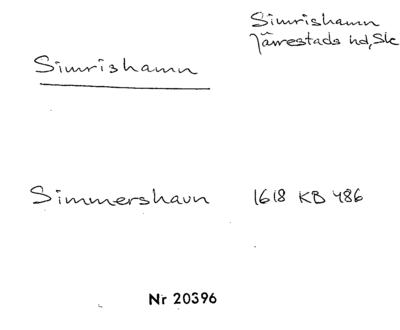 Simrishamn
Järrestads hd, Sk
Simrishamn
Simmershavn 1618 KB 486
Nr 20396